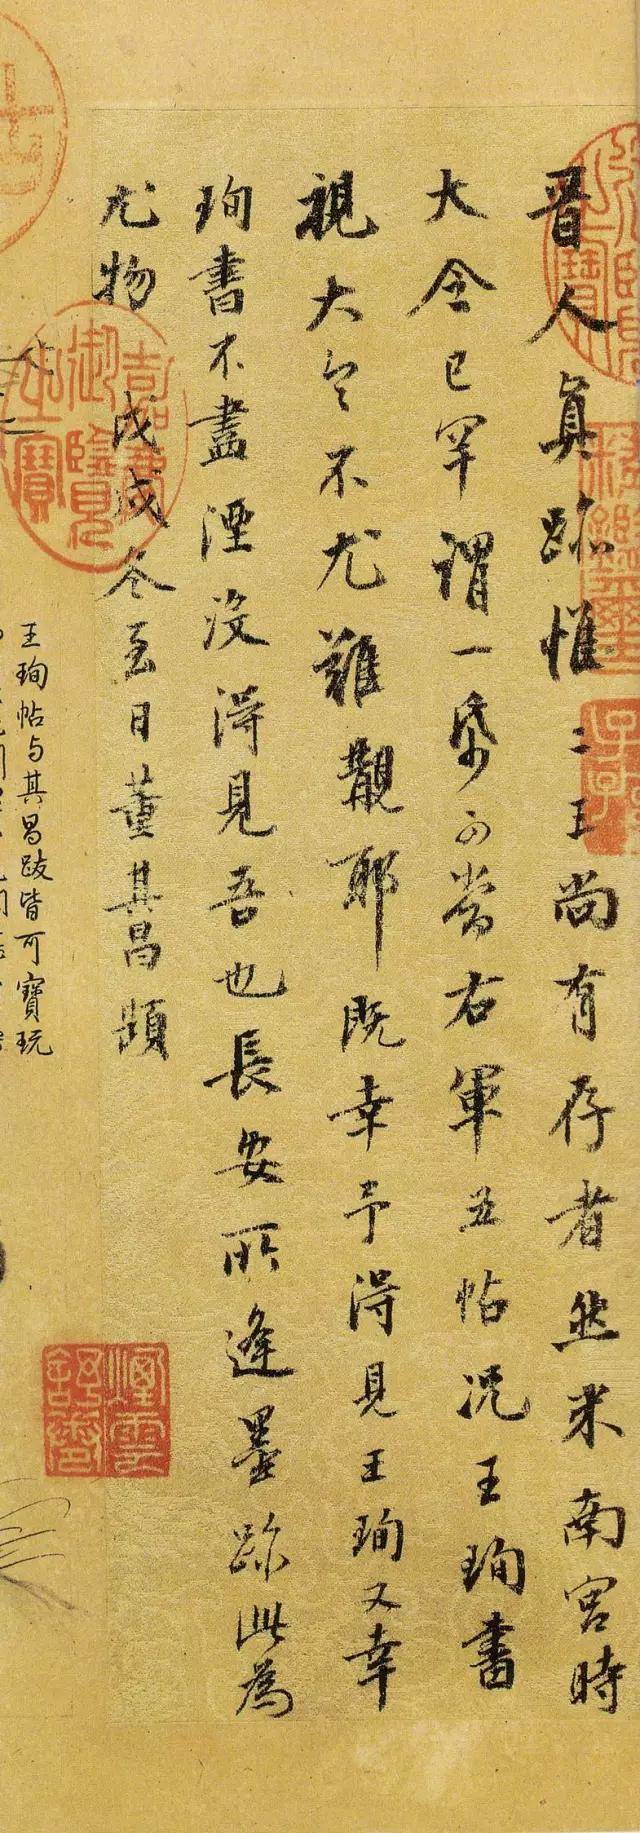 晉人真跡惟二王尚有存者然米南宮時
大令已罕謂一帋可當右軍五帖況王珣書
視大令不尤難覯耶既幸予得見王珣又幸
珣書不盡湮沒得見吾也長安所逢墨跡此為
尤物 戊戌冬至日董其昌題
王珣帖与其昌跋皆可寶玩
嘉慶御覽之寶
煙雲